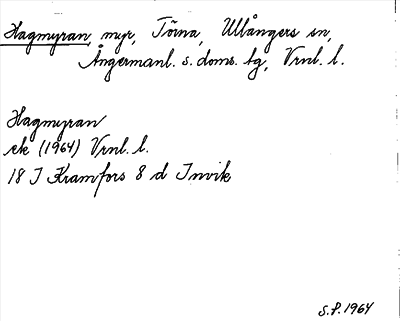 Hagmyran, myr, Törna, Ullångers sn,
Ångermanl. s. doms. tg, Vrnl. l.
Hagmyran
ek (1964) Vrnl. l.
18 J Kramfors 8 d Invik
S.P. 1964